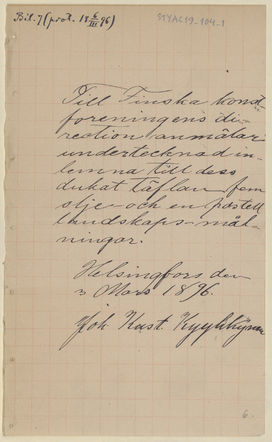 Bil. 7 (prot. 18 6/III 96)
STYAC19-104-1
Till Finska konst
föreningens di-
rection anmälar
undertecknad in-
lemna till dess
dukat taflan fem
olje- och en pastell
landskaps-mål-
ningar.
Helsingfors den
3 Mars 1896.
Joh Kast.
6.